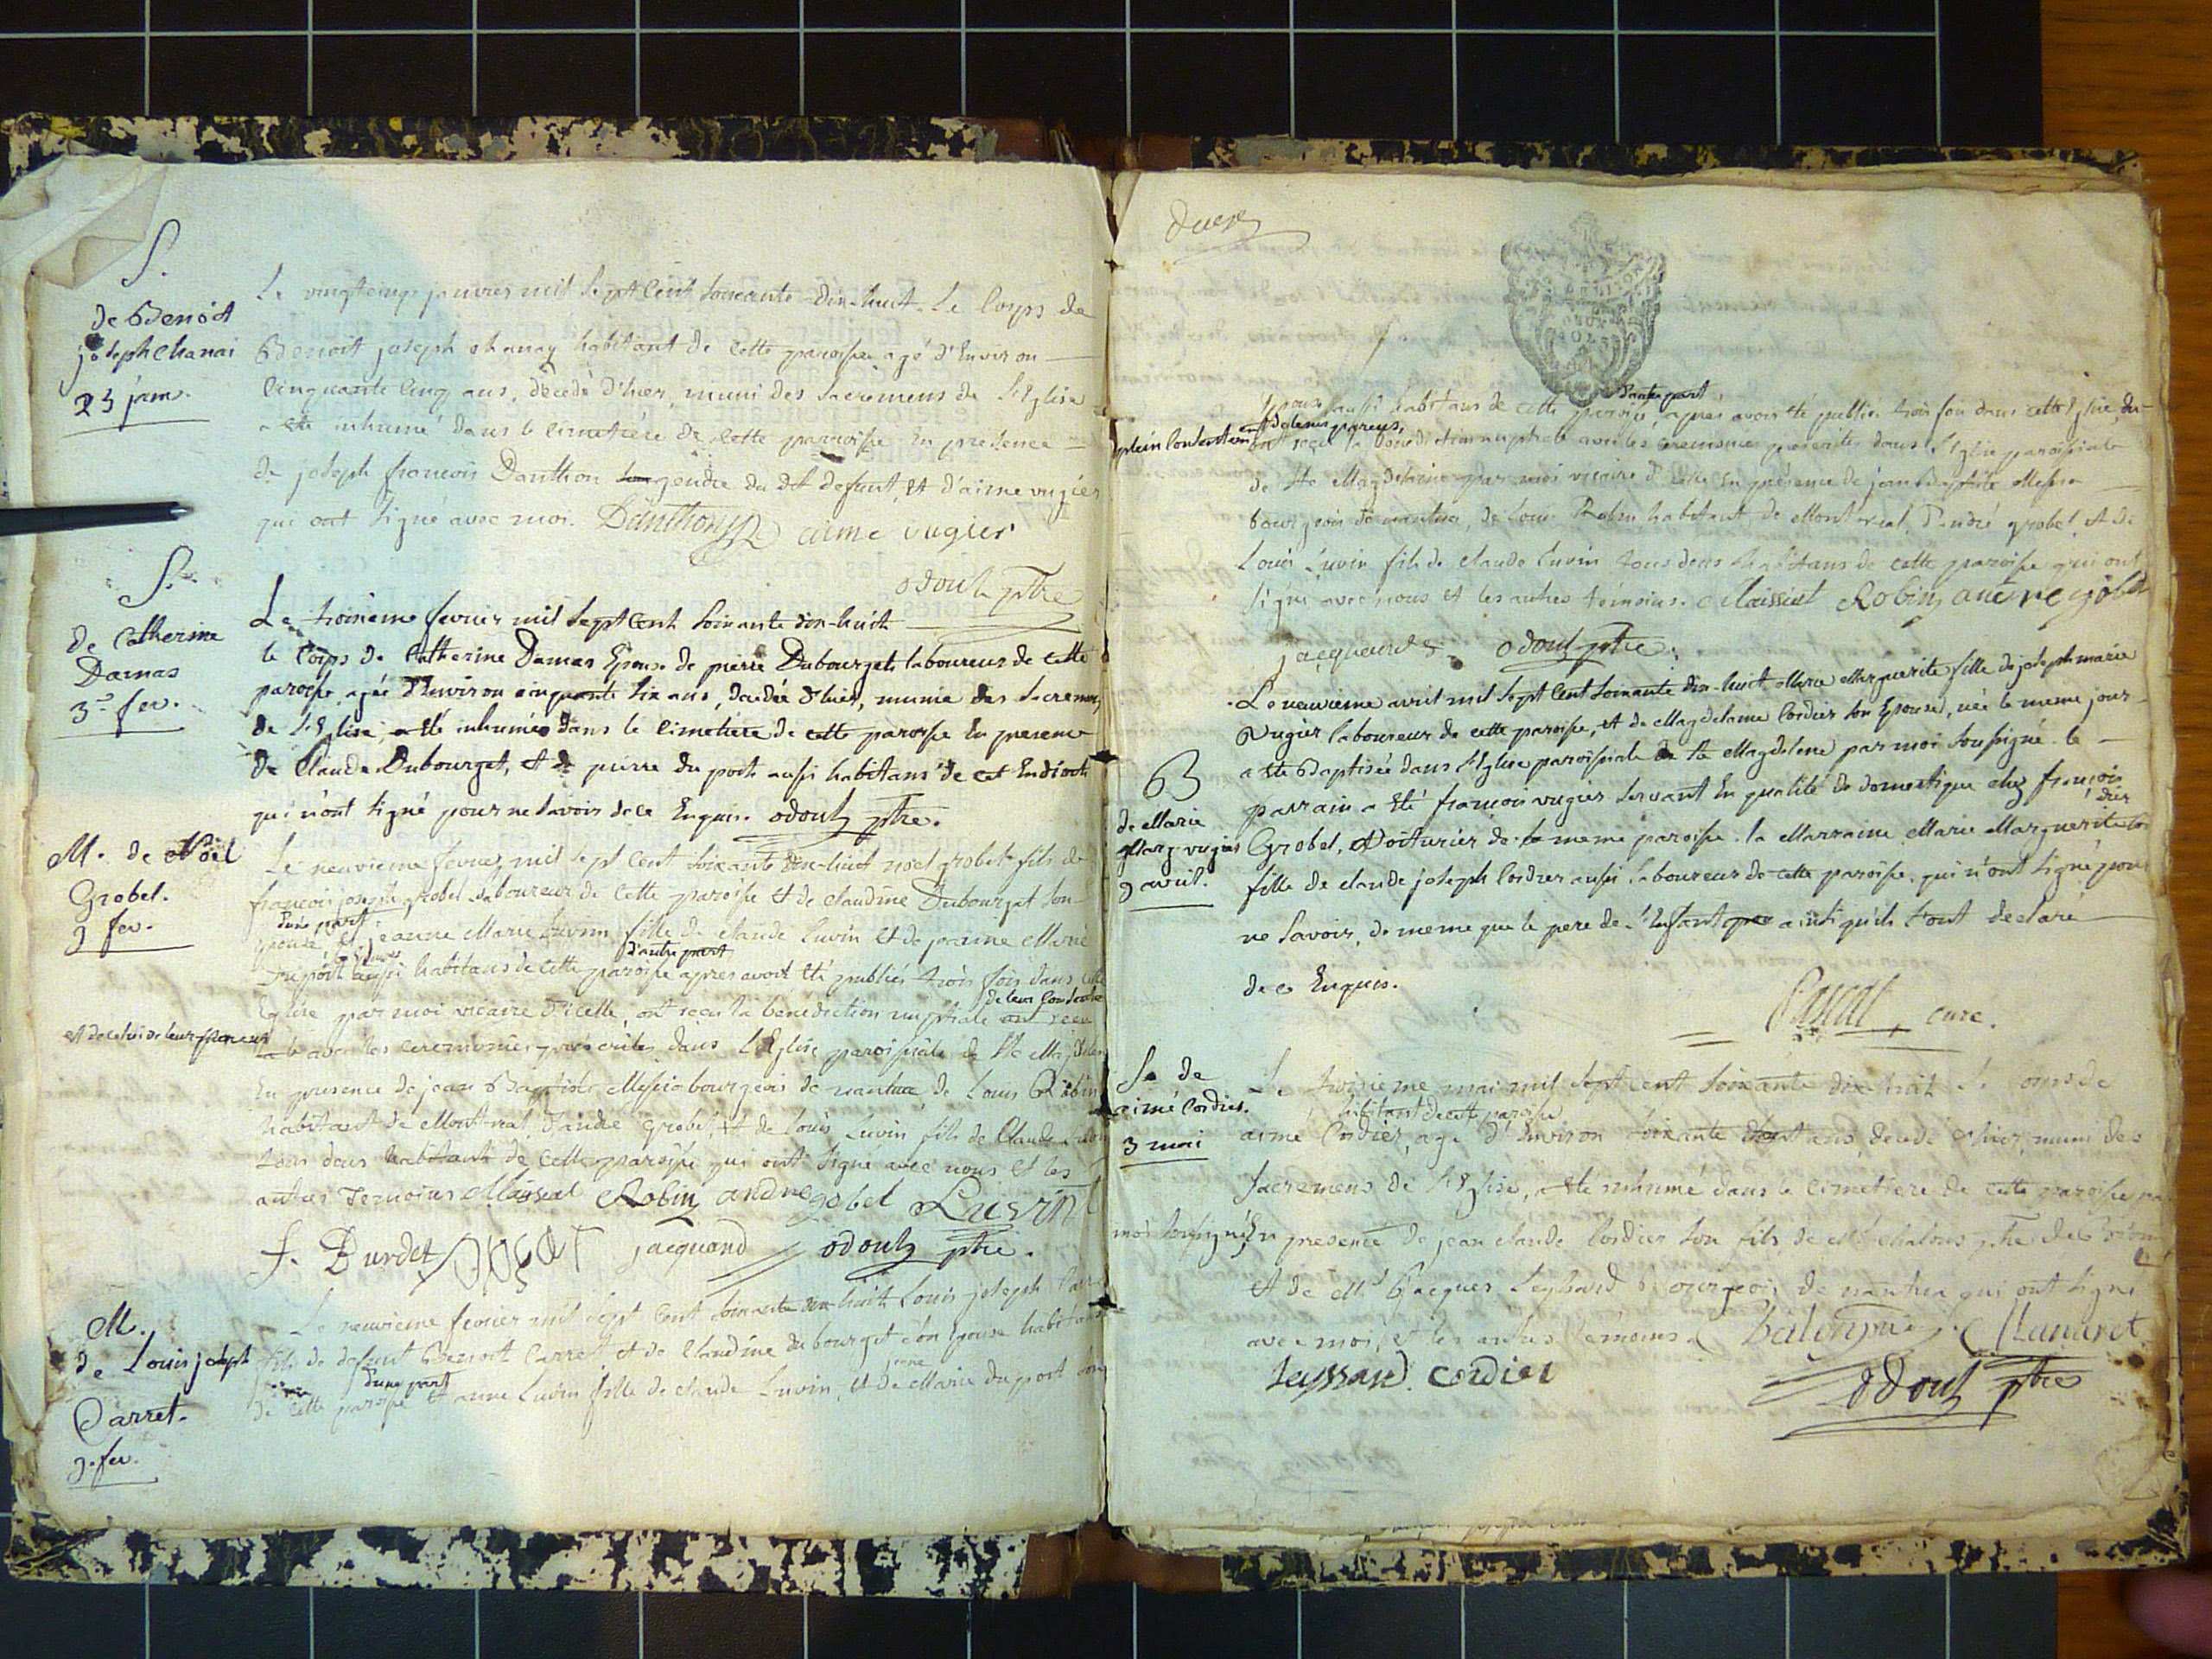 S.
de Benoit
joseph chanai
25 janv.
Le vingtcinq janvier mil sept cent soixante-dix-huit le corps de
Benoit joseph chanay habitant de cette paroisse agé d'Environ
Cinquante Cinq ans, décedé d'hier, muni des sacremens de l'Eglise
a été inhumé dans le cimetière de cette paroisse En presence
de joseph françois Danthon gendre du dt defunt, et d'aime vugier
qui ont signé avec moi. Danthon aime vugier
odouh ptre
S.
de Catherine
Damas
3e fev.
Le troisieme fevrier mil sept cent soixante dix-huit
le corps de Catherine Damas Epouse de pierre Dubourget laboureur de cette
paroisse, agée d'Environ cinquante six ans, décédée d'hier, munie des sacremens
de l'Eglise, a été inhumée dans le cimetière de cette paroisse En presence
de Claude Dubourget, et de pierre du port aussi habitans de cet Endroit
qui n'ont signé pour ne savoir de ce Enquis. odouh ptre.
M. de Noël
Grobel.
9 fev.
Le neuvieme fevrier mil sept cent soixante dix-huit noel grobel fils de
françois joseph grobel laboureur de cette paroisse et de claudine Dubourget son
d'une part
épouse et jeanne Marie Luvin fille de claude Luvin et de jeanne Marie
d'autre part
Duport aussi habitans de cette paroisse apres avoir été publiés trois fois dans cette
Eglise par moi vicaire d'icelle, ont reçu la bénédiction nuptiale
de leur consentement
et de celui de leurs parens
avec les ceremonies prescrites dans l'Eglise paroissiale de Ste Magdelene
En presence de jean Baptiste Messia bourgeois de nantua de Louis Robin
habitant de Montreal d'andré grobel, et de louis Luvin fils de Claude Luvin
tous deux habitans de cette paroisse qui ont signé avec nous et les
autres temoins Maissiat Robin andre gobel Luvin
f. Burdet jacquand odouh ptre.
M.
de Louis joseph
Carret.
9 fev.
Le neuvieme fevrier mil sept cent soixante dix-huit Louis joseph Carret
fils de defunt Benoit Carret et de Claudine du bourget son Epouse habitans
d'une part
de cette paroisse et anne Luvin fille de claude Luvin, et de Marie duport son
Epouse aussi habitans de cette paroisse, apres avoir été publiés trois fois dans cette Eglise, du
d'autre part
plein consentement de leurs parens,
ont reçu la bénédiction nuptiale avec les ceremonies prescrites dans l'Eglise paroissiale
de Ste Magdeleine par moi vicaire d'icelle En présence de jean Baptiste Messia
bourgeois de nantua, de Louis Robin habitant de Montreal, d'andré grobel, et de
Louis Luvin fils de claude Luvin tous deux habitans de cette paroisse qui ont
signé avec nous et les autres témoins. Maissiat Robin andre gobel
jacquand odouh ptre.
B
de Marie
Marg. vugier
9 avril.
Le neuvieme avril mil sept cent soixante dix-huit Marie Marguerite fille de joseph marie
Vugier laboureur de cette paroisse, et de Magdelaine Cordier son Epouse, née le meme jour
a été Baptisée dans l'Eglise paroissiale de Ste Magdelene par moi soussigné le
parrain a été françois vugier servant En qualité de domestique chez françois
Grobel, Voiturier de la meme paroisse. la Marraine Marie Marguerite Cordier
fille de claude joseph Cordier aussi laboureur de cette paroisse. qui n'ont signé pour
ne savoir, de meme que le pere de l'Enfant ainsi qu'ils l'ont declaré
de ce Enquis.
curé.
S. de
aimé Cordier.
3 mai
Le troisieme mai mil sept cent soixante dix-huit le corps de
habitant de cette paroisse
aimé Cordier, agé d'Environ soixante ans, décedé d'hier, muni des
sacremens de l'Eglise, a été inhumé dans le cimetiere de cette paroisse par
moi soussigné En presence de jean claude Cordier son fils, de
et de Mr jacques Leyssard Bourgeois de nantua qui ont signé
avec moi, et les autres temoins.
Leyssard. Cordier
odouh ptre